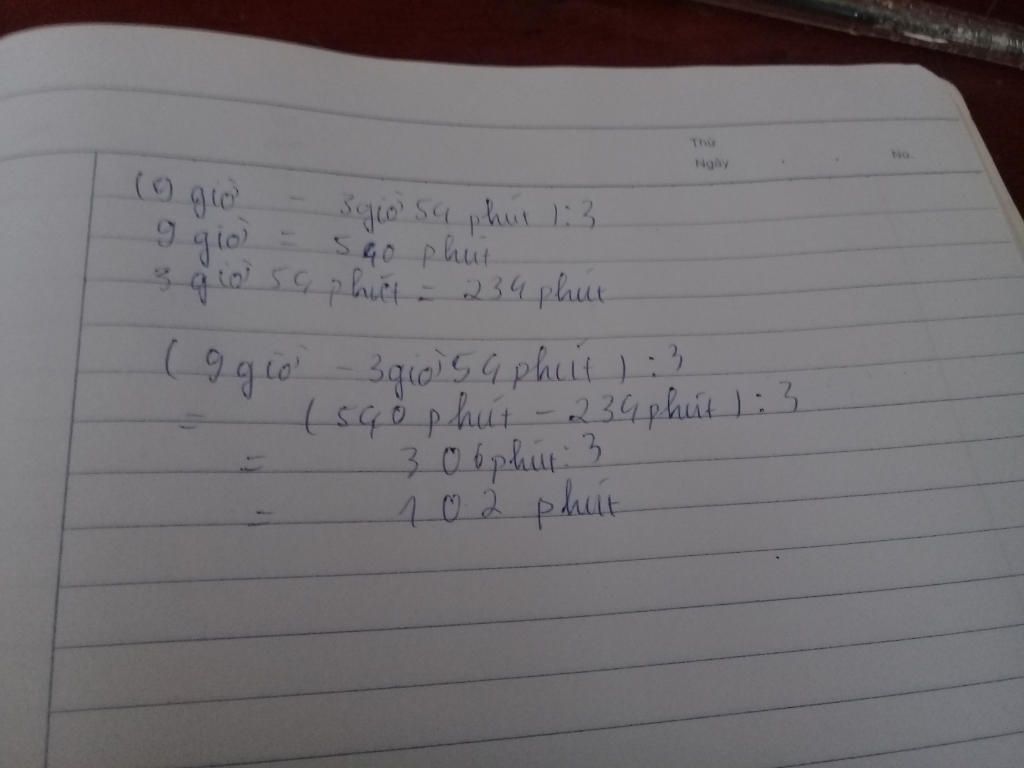 Thứ
Ngày . . No.
(9 giờ - 3giờ 54 phút) : 3
9 giờ = 540 phút
3 giờ 54 phút = 234 phút
( 9 giờ - 3giờ 54 phút ) : 3
= ( 540 phút - 234 phút ) : 3
= 306 phút : 3
= 102 phút